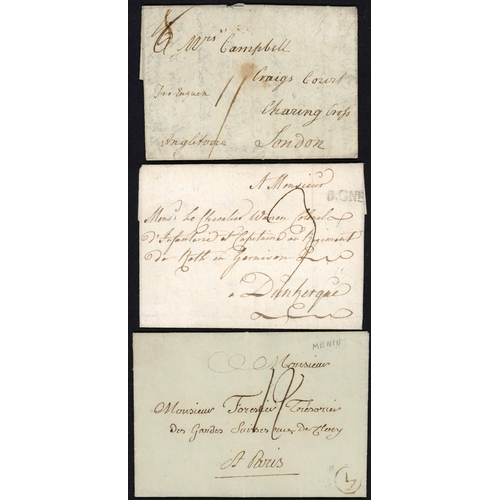 Mrs Campbell
Craigs Court
Charing Cross
Angleterre London
A Monsieur
Monsr. Le Chevalier Colonel
d'Infanterie et Capitaine au Regiment
de Roth en Garnison
a Dunkerque
MENIN
Monsieur
Monsieur Forestier Trésorier
des Gardes Suisses rue de Clery
A Paris